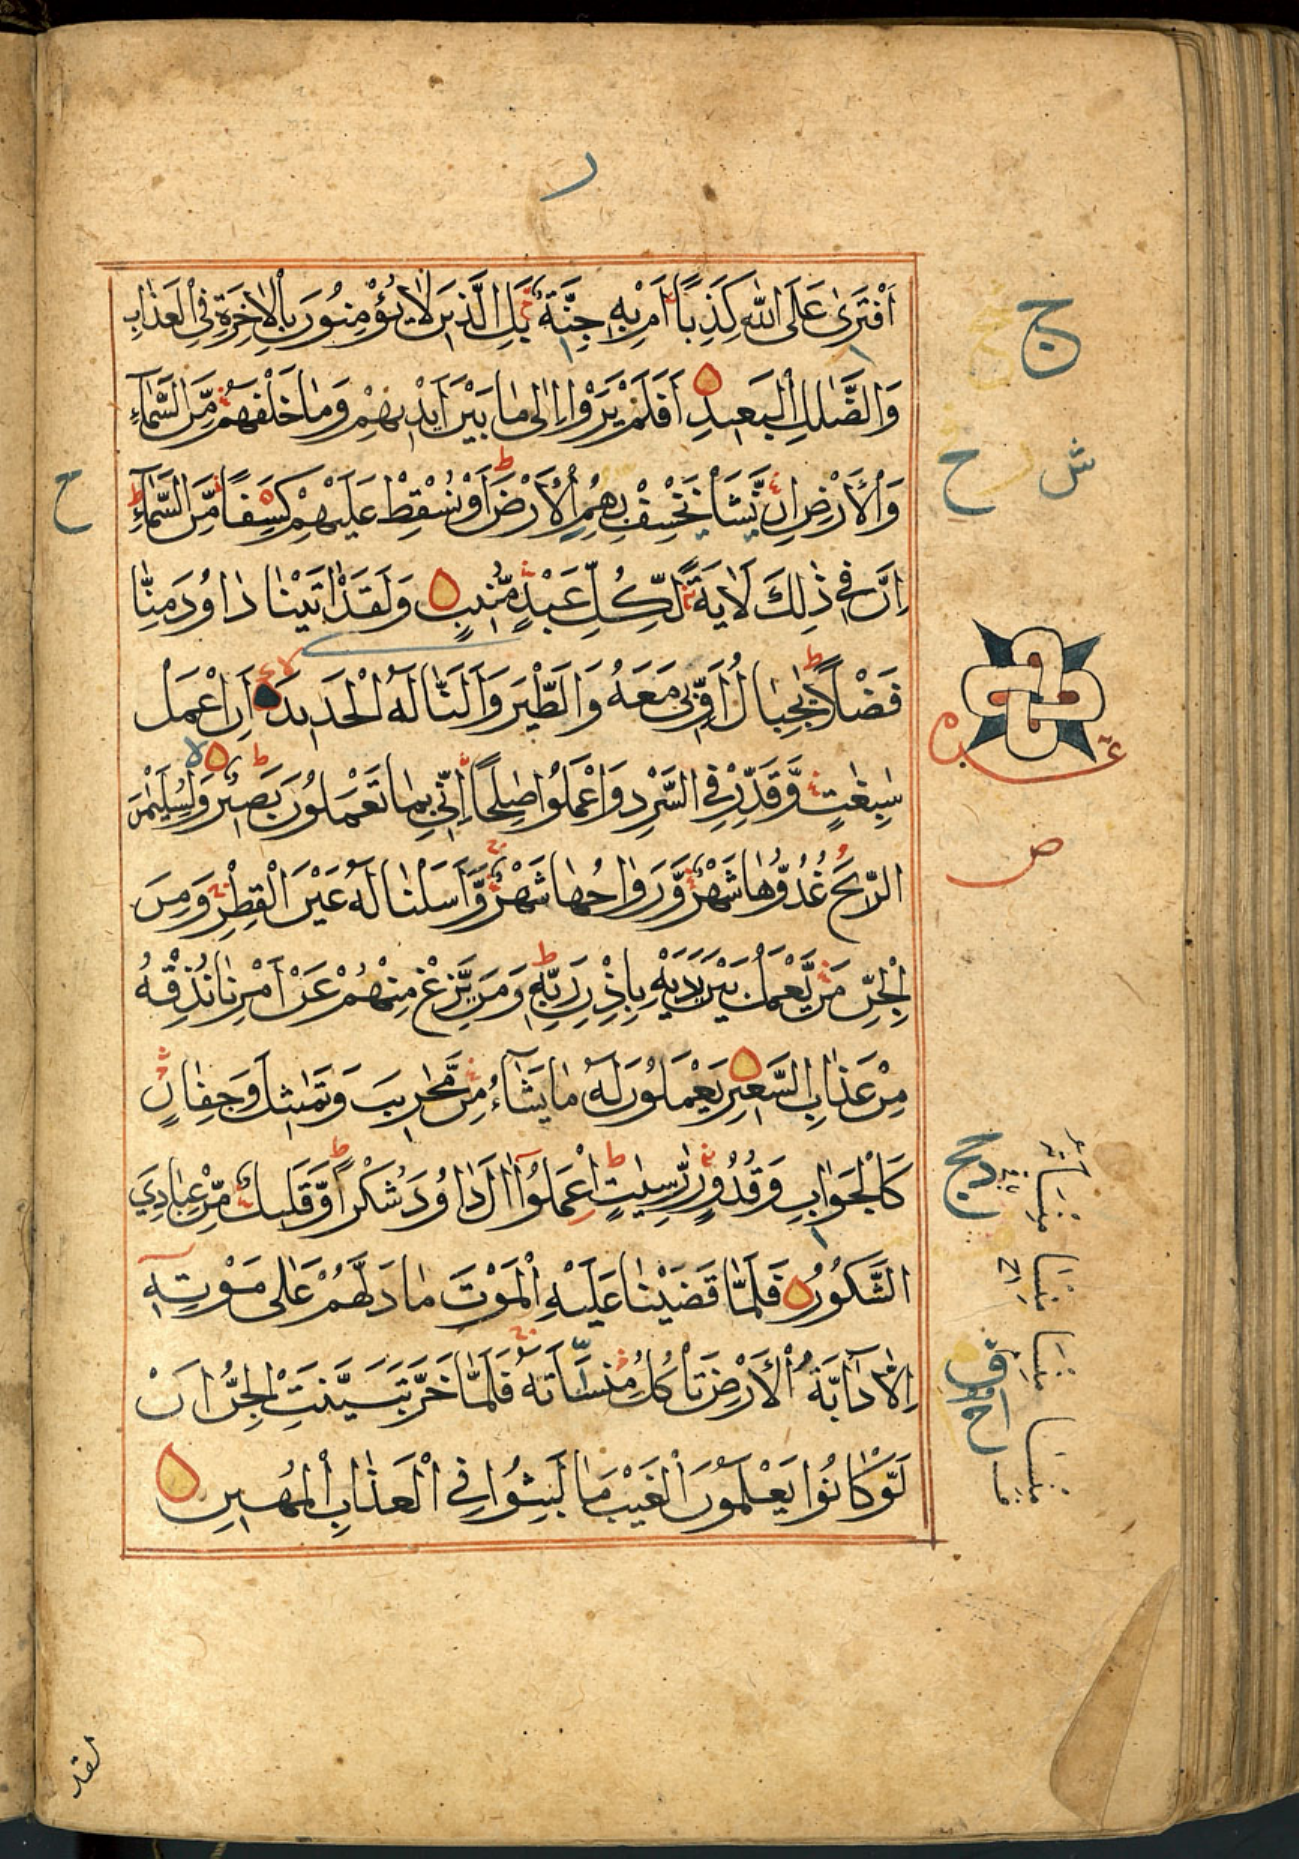 ر
اَفْتَرٰى عَلَى اللّٰهِ كَذِبًا اَمْ بِهٖ جِنَّةٌ بَلِ الَّذِيْنَ لَا يُؤْمِنُوْنَ بِالْاٰخِرَةِ فِى الْعَذَابِ
وَالضَّلٰلِ الْبَعِيْدِ اَفَلَمْ يَرَوْا اِلٰى مَا بَيْنَ اَيْدِيْهِمْ وَمَا خَلْفَهُمْ مِّنَ السَّمَآءِ
وَالْاَرْضِ اِنْ نَّشَاْ نَخْسِفْ بِهِمُ الْاَرْضَ اَوْ نُسْقِطْ عَلَيْهِمْ كِسَفًا مِّنَ السَّمَآءِ
اِنَّ فِيْ ذٰلِكَ لَاٰيَةً لِّكُلِّ عَبْدٍ مُّنِيْبٍ وَلَقَدْ اٰتَيْنَا دَاوٗدَ مِنَّا
فَضْلًا يٰجِبَالُ اَوِّبِيْ مَعَهٗ وَالطَّيْرَ وَاَلَنَّا لَهُ الْحَدِيْدَ اَنِ اعْمَلْ
سٰبِغٰتٍ وَّقَدِّرْ فِى السَّرْدِ وَاعْمَلُوْا صٰلِحًا اِنِّيْ بِمَا تَعْمَلُوْنَ بَصِيْرٌ وَلِسُلَيْمٰنَ
الرِّيْحَ غُدُوُّهَا شَهْرٌ وَّرَوَاحُهَا شَهْرٌ وَّاَسَلْنَا لَهٗ عَيْنَ الْقِطْرِ وَمِنَ
الْجِنِّ مَنْ يَّعْمَلُ بَيْنَ يَدَيْهِ بِاِذْنِ رَبِّهٖ وَمَنْ يَّزِغْ مِنْهُمْ عَنْ اَمْرِنَا نُذِقْهُ
مِنْ عَذَابِ السَّعِيْرِ يَعْمَلُوْنَ لَهٗ مَا يَشَآءُ مِنْ مَّحَارِيْبَ وَتَمَاثِيْلَ وَجِفَانٍ
كَالْجَوَابِ وَقُدُوْرٍ رّٰسِيٰتٍ اِعْمَلُوْا اٰلَ دَاوٗدَ شُكْرًا وَّقَلِيْلٌ مِّنْ عِبَادِيَ
الشَّكُوْرُ فَلَمَّا قَضَيْنَا عَلَيْهِ الْمَوْتَ مَا دَلَّهُمْ عَلٰى مَوْتِهٖ
اِلَّا دَآبَّةُ الْاَرْضِ تَاْكُلُ مِنْسَاَتَهٗ فَلَمَّا خَرَّ تَبَيَّنَتِ الْجِنُّ اَنْ
لَّوْ كَانُوْا يَعْلَمُوْنَ الْغَيْبَ مَا لَبِثُوْا فِى الْعَذَابِ الْمُهِيْنِ
ج
ح
ح
ص
لقد